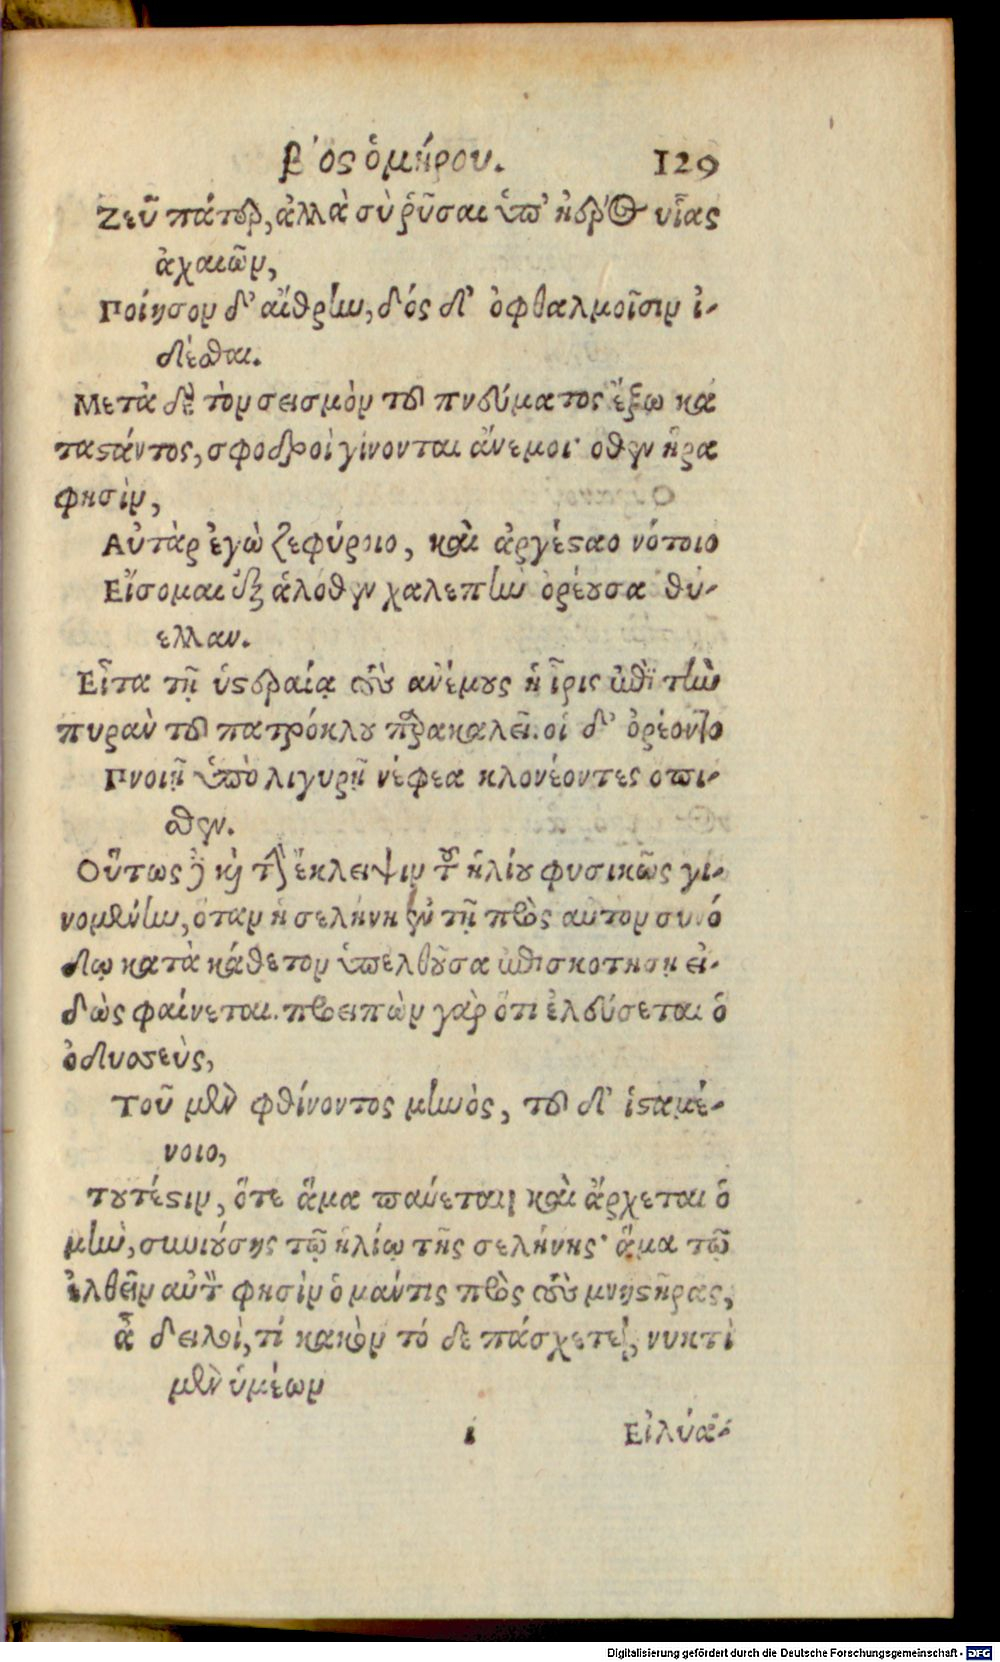 βίος ὁμήρου. 129
Ζεῦ πάτερ, ἀλλὰ σὺ ῥῦσαι ὑπ' ἠέρος υἷας
ἀχαιῶν,
Ποίησον δ' αἴθρην, δός δ' ὀφθαλμοῖσιν ἰ-
δέσθαι.
Μετὰ δὲ τὸν σεισμὸν τοῦ πνεύματος ἔξω κα
ταστάντος, σφοδροὶ γίνονται ἄνεμοι· οθεν ἥρα
φησὶν,
Αὐτὰρ ἐγὼ ζεφύροιο, καὶ ἀργέσαο νότοιο
Εἴσομαι ἐξ ἁλόθεν χαλεπὴν ὀρέουσα θύ-
ελλαν.
Εἶτα τῇ ὑστεραίᾳ τοὺς ανέμους ἡ ἶρις ἐπὶ τὴν
πυρὰν τοῦ πατρόκλου παρακαλεῖ. οἱ δ' ὀρέοντο
Πνοιῇ ὑπὸ λιγυρῇ νέφεα κλονέοντες οπι-
σθεν.
Οὕτως καὶ τὴν ἔκλειψιν τοῦ ἡλίου φυσικῶς γι-
νομένην, ὅταν ἡ σελήνη ἐν τῇ πρὸς αυτον συνό
δῳ κατὰ κάθετον ὑπελθοῦσα ἐπισκοτησῃ εἰ-
δὼς φαίνεται. προειπὼν γὰρ ὅτι ἐλεύσεται ὁ
ὀδυσσεὺς,
Τοῦ μὲν φθίνοντος μηνὸς, τοῦ δ' ἱσταμέ-
νοιο,
τουτέστιν, ὅτε ἅμα παύεται καὶ ἄρχεται ὁ
μὴν, συνιούσης τῷ ἡλίῳ τῆς σελήνης· ἅμα τῷ
ἐλθεῖν αὐτὸν φησὶν ὁ μάντις πρὸς τοὺς μνηστῆρας,
ἆ δειλοὶ, τί κακὸν τό δε πάσχετε, νυκτὶ
μὲν ὑμέων
i Εἰλύα-
Digitalisierung gefördert durch die Deutsche Forschungsgemeinschaft - DFG